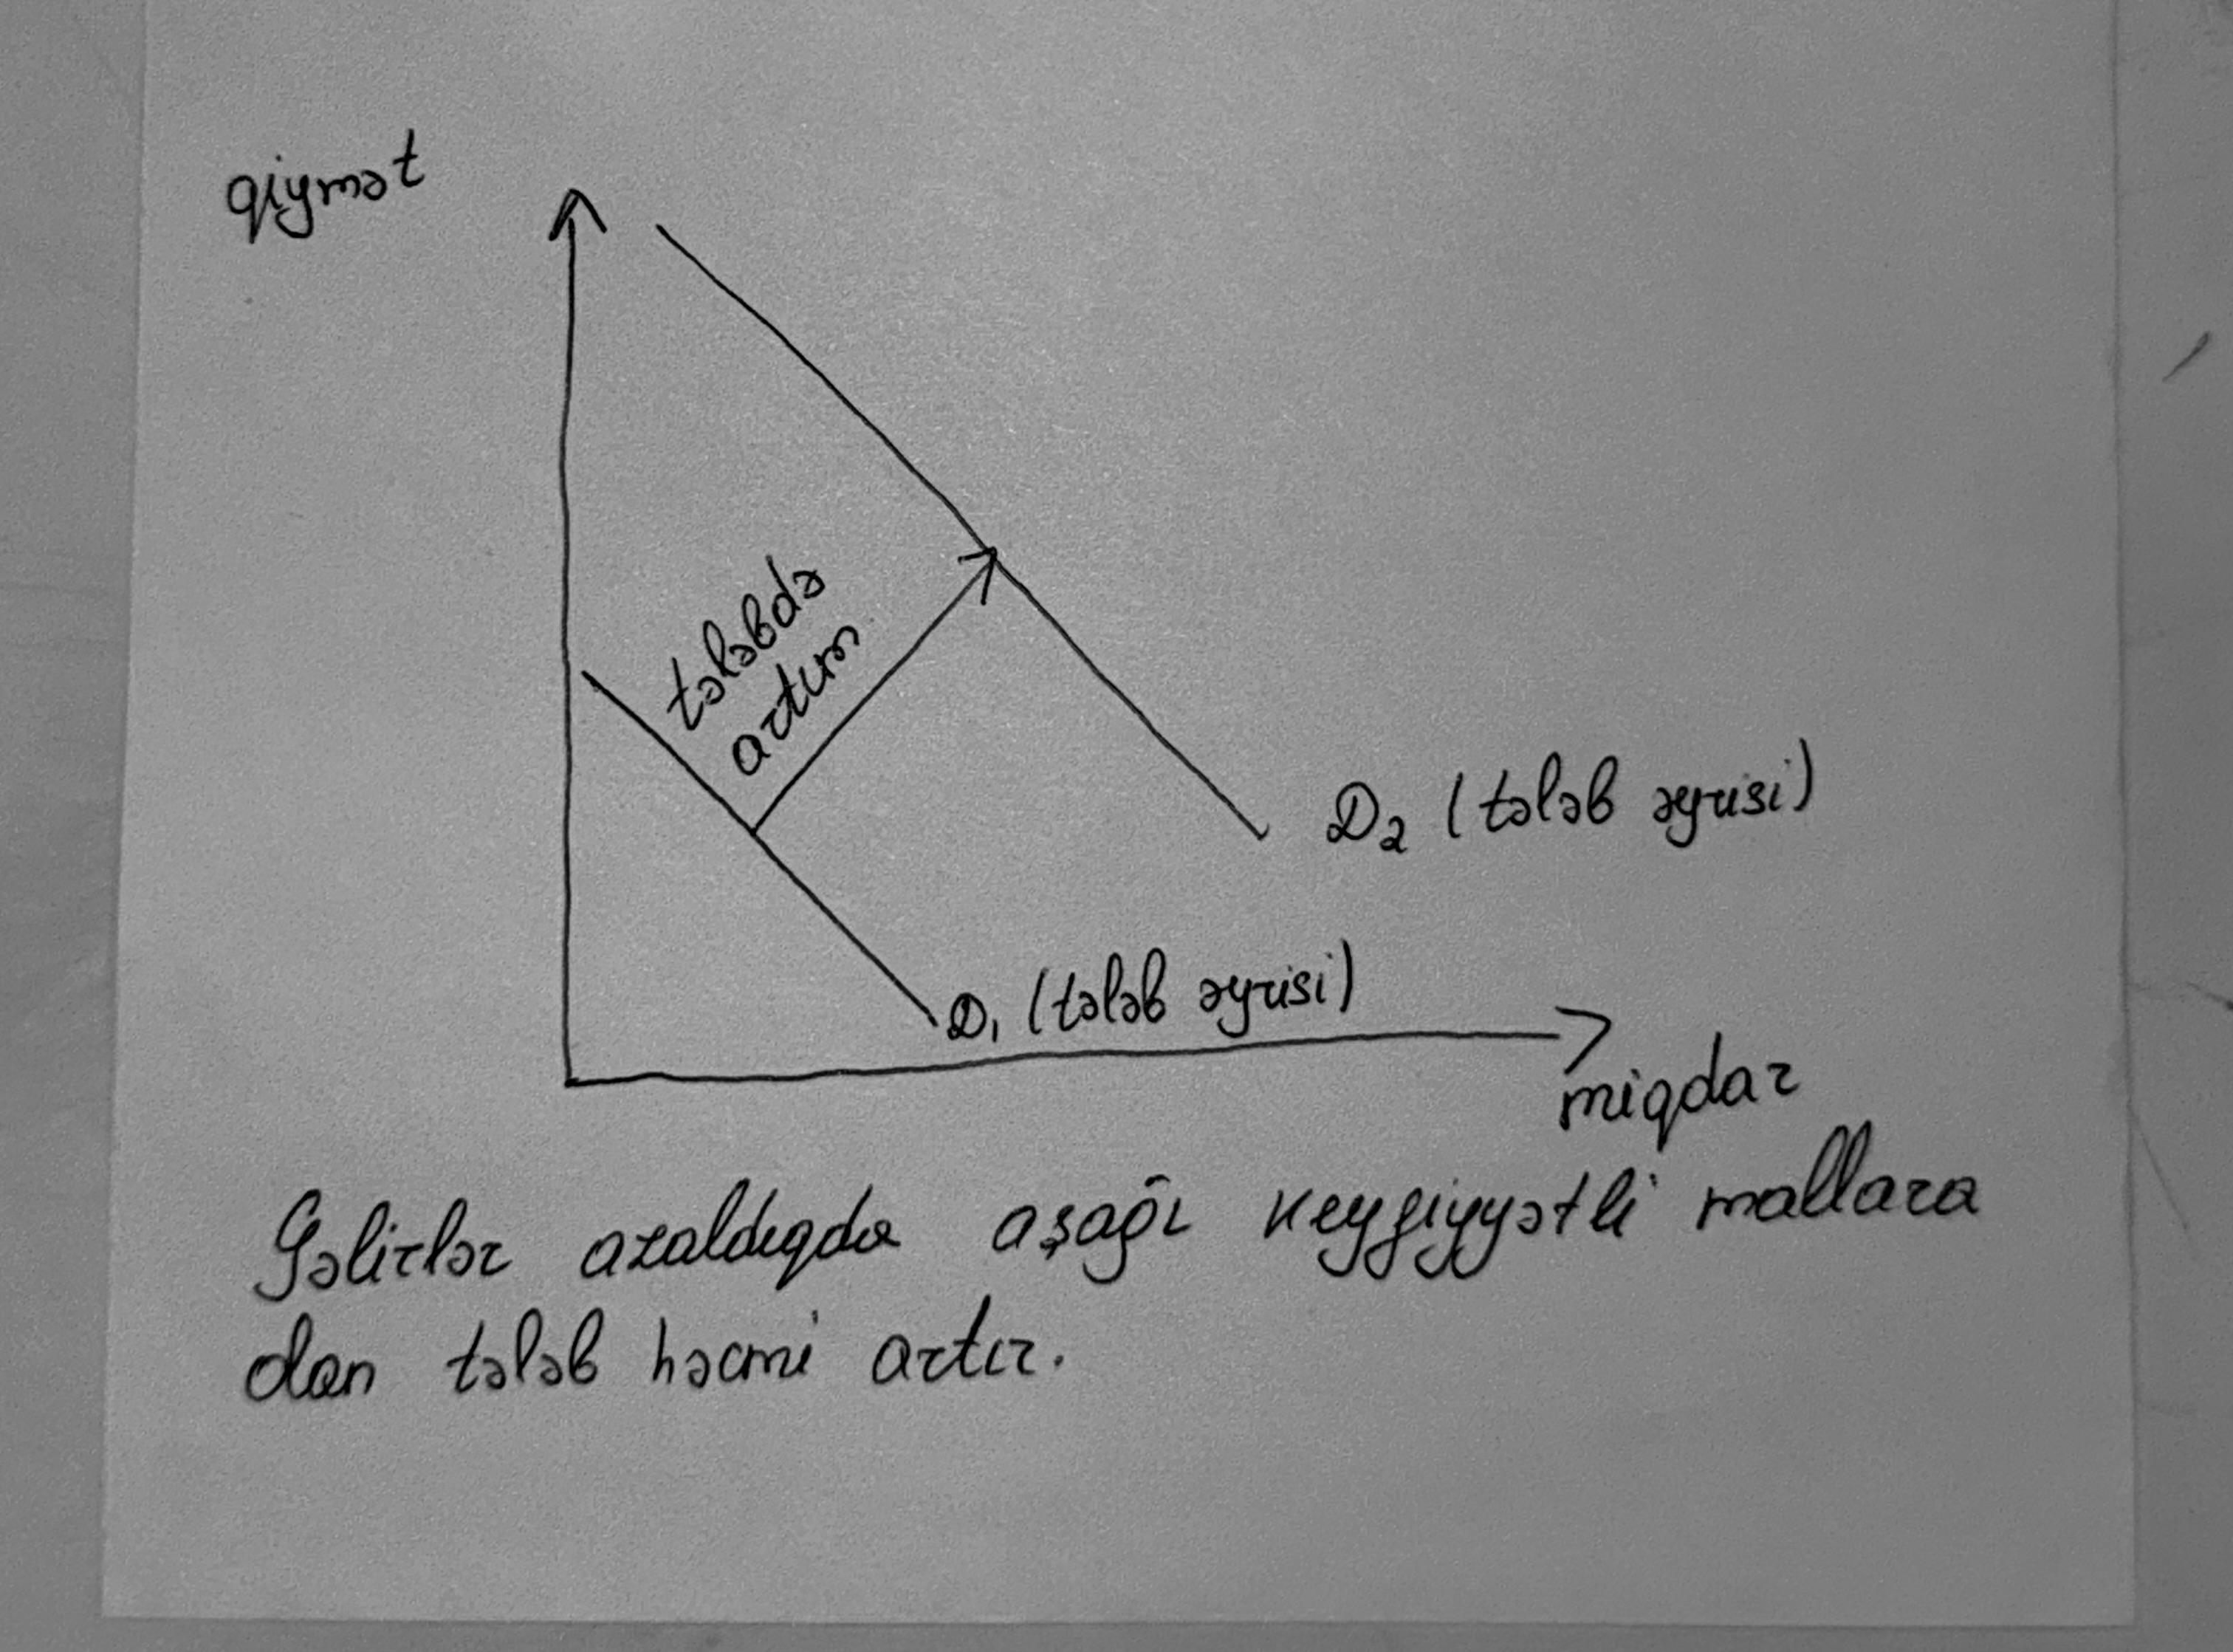 qiymət
tələbdə
artım
D₂ (tələb əyrisi)
D₁ (tələb əyrisi)
miqdar
Gəlirlər azaldıqda aşağı keyfiyyətli mallara
olan tələb həcmi artır.